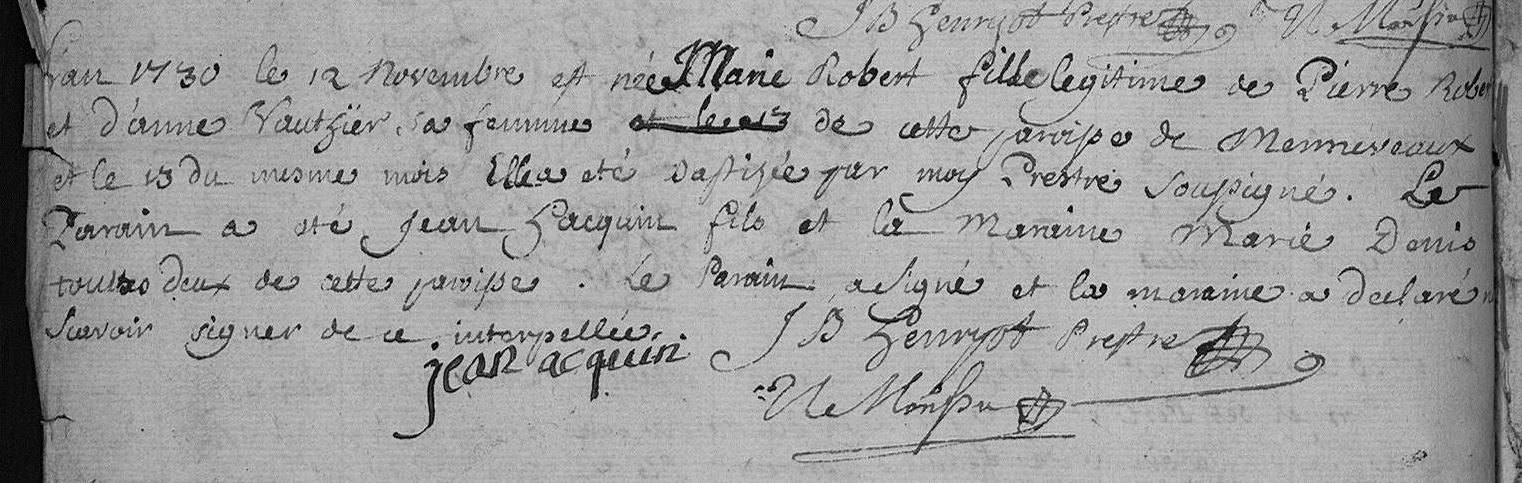 JB Henryot Prestre N Moussu
L'an 1730 le 12 Novembre est née Marie Robert fille legitime de Pierre Robert
et d'anne Vauthier sa femme et le 13 de cette paroisse de Menneveaux
et le 13 du mesme mois Elle a eté Bastizée par moy Prestre soussigné. Le
Parain a eté Jean Jacquin fils et la Maraine Marie Denis
toutes deux de cette paroisse. Le Parain a signé et la maraine a declaré ne
scavoir signer de ce interpellée.
JB Henryot Prestre
jean acquin
N le Moussu